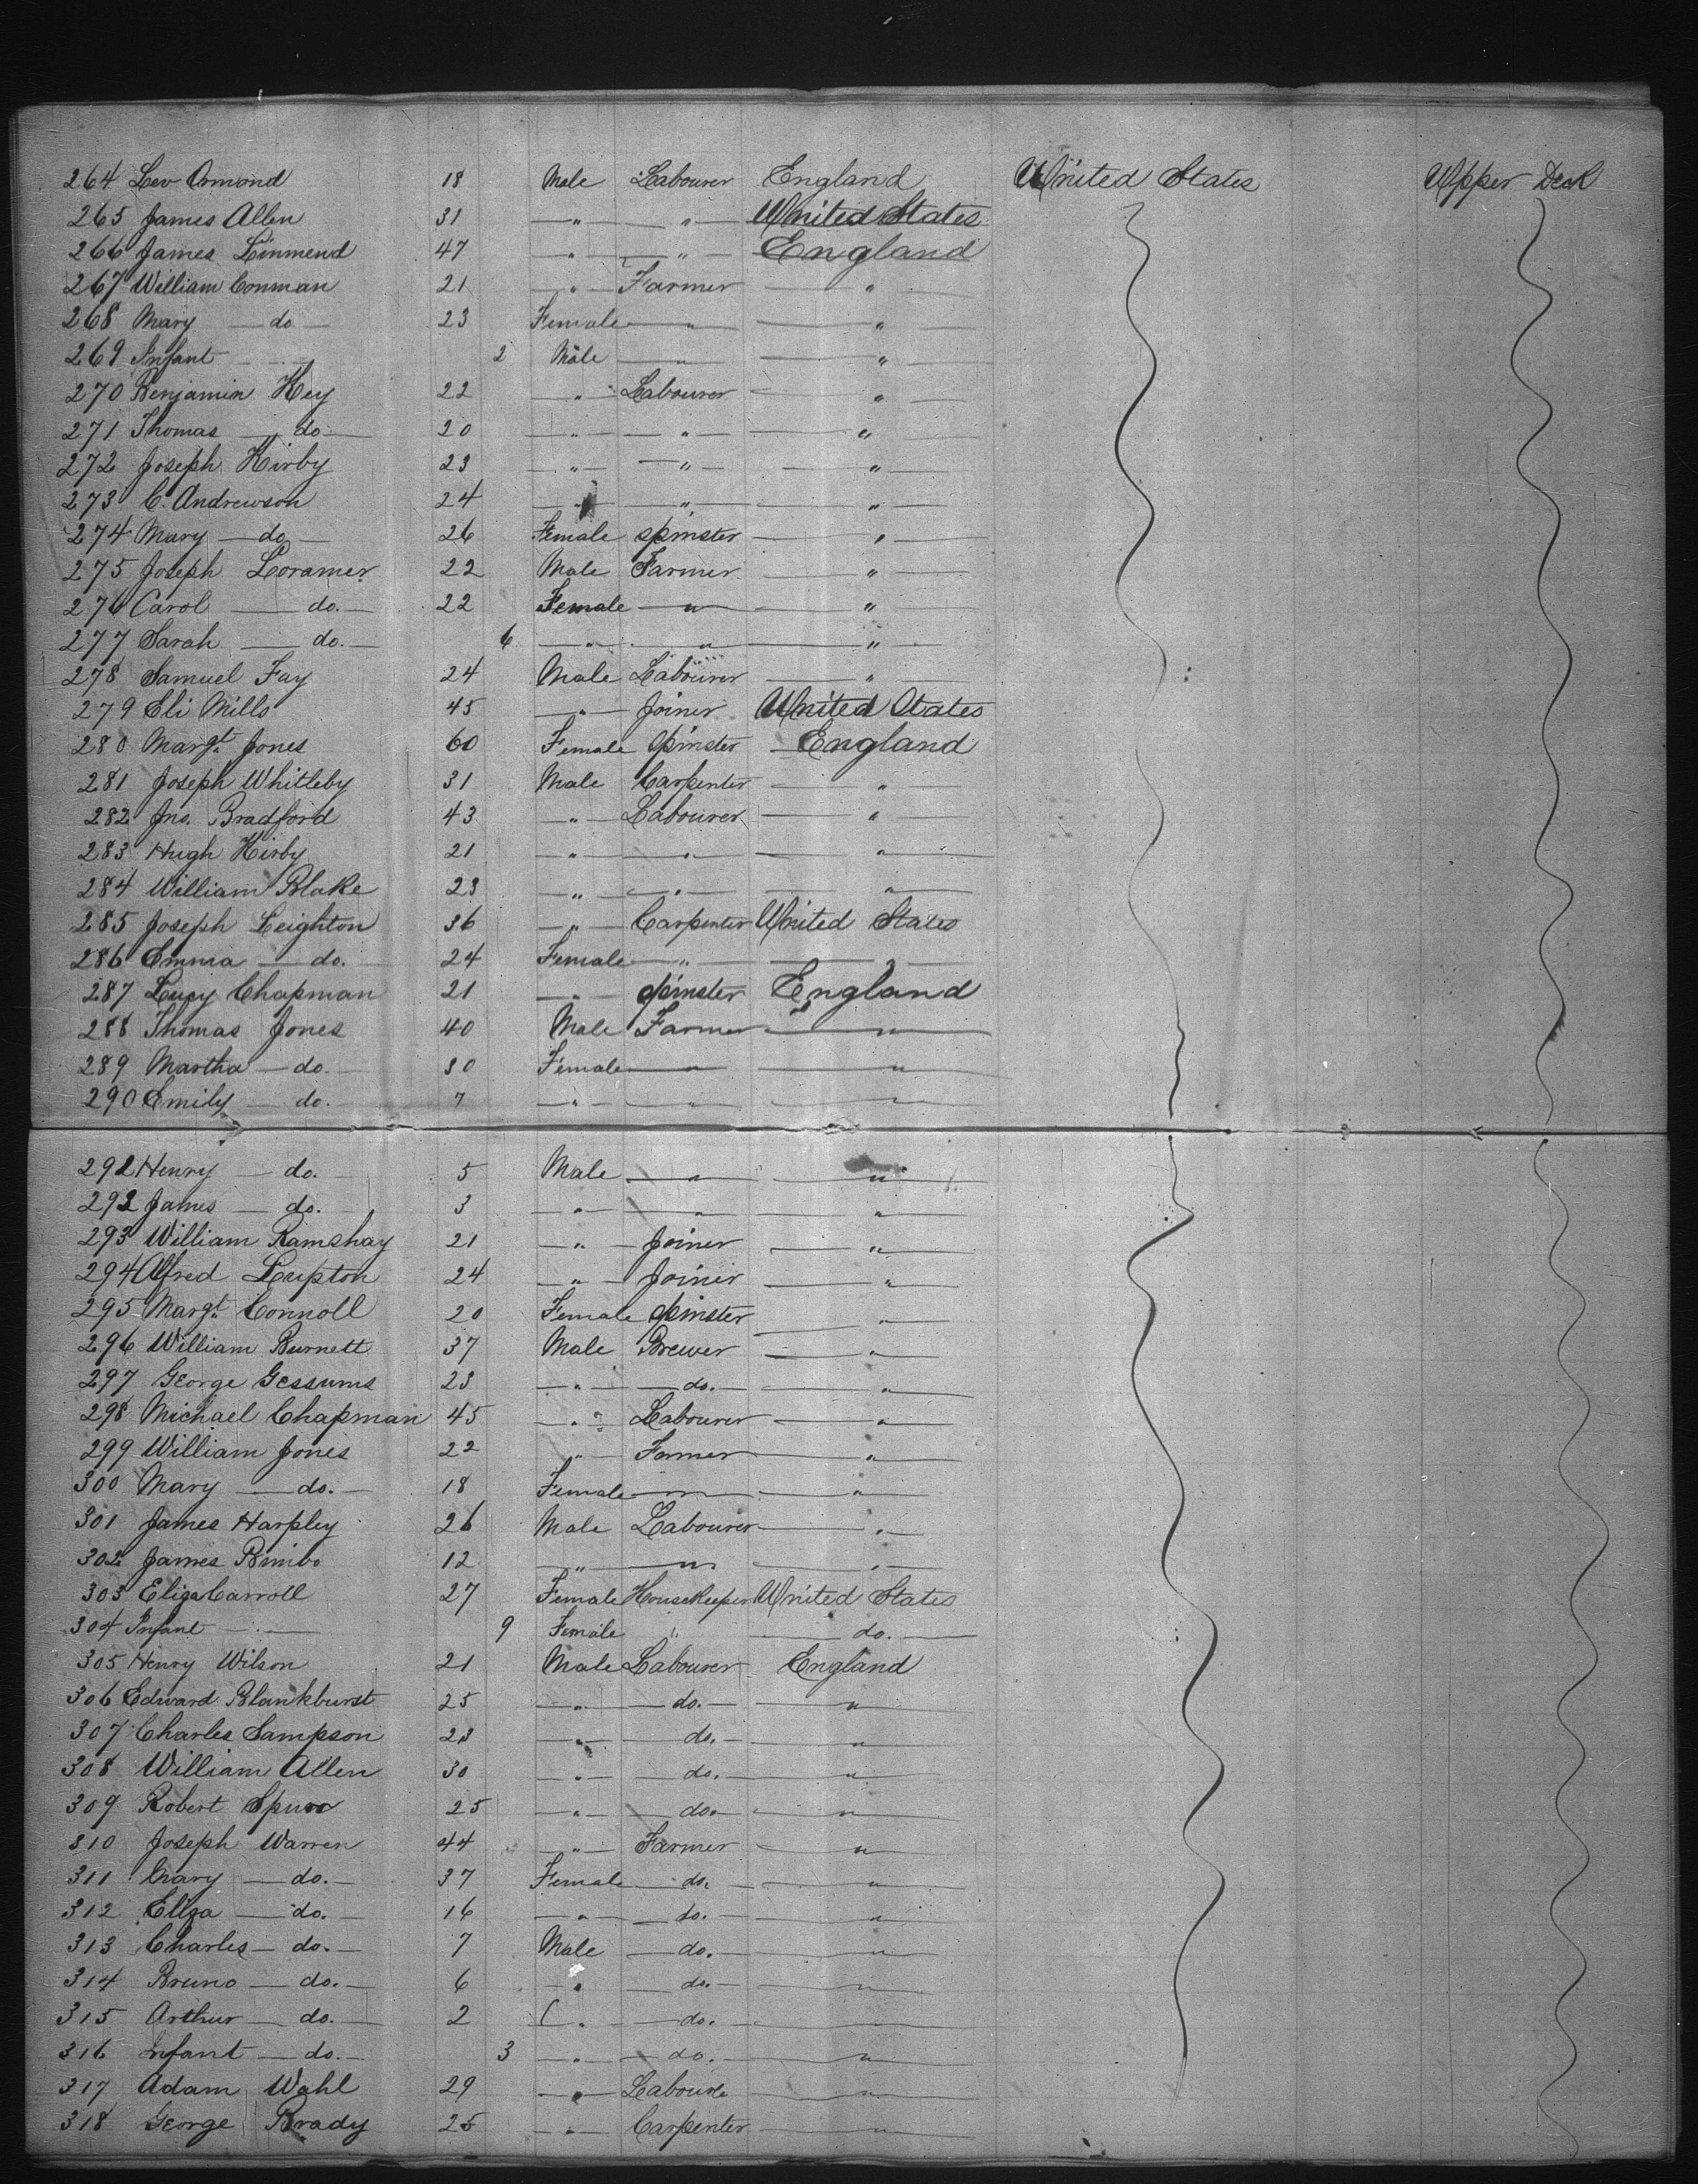 264 Lev Ormond 18 Male Labourer England United States Upper Deck
265 James Allen 31 — " — " — United States
266 James Linmend 47 — " — " — England
267 William Conman 21 — " — Farmer — " —
268 Mary — do — 23 Female — " — " —
269 Infant 2 Male — " — " —
270 Benjamin Key 22 — " — Labourer — " —
271 Thomas — do — 20 — " — " — " —
272 Joseph Kirby 23 — " — " — " —
273 C. Andrewson 24 — " — " — " —
274 Mary — do — 26 Female spinster — " —
275 Joseph Loramer 22 Male Farmer — " —
276 Carol — do. — 22 Female — " — " —
277 Sarah — do. — 6 — " — " — " —
278 Samuel Fay 24 Male Labourer — " —
279 Eli Mills 45 — " — Joiner United States
280 Margt. Jones 60 Female Spinster England
281 Joseph Whitleby 31 Male Carpenter — " —
282 Jno. Bradford 43 — " — Labourer — " —
283 Hugh Kirby 21 — " — " — " —
284 William Blake 23 — " — " — " —
285 Joseph Leighton 36 — " — Carpenter United States
286 Emma — do. 24 Female — " — " —
287 Lucy Chapman 21 — " — Spinster England
288 Thomas Jones 40 Male Farmer — " —
289 Martha — do. 30 Female — " — " —
290 Emily — do. 7 — " — " — " —
291 Henry — do. 5 Male — " — " —
292 James — do. 3 — " — " — " —
293 William Ramshay 21 — " — Joiner — " —
294 Alfred Lupton 24 — " — Joiner — " —
295 Margt. Connoll 20 Female Spinster — " —
296 William Burnett 37 Male Brewer — " —
297 George Gessums 23 — " — do. — " —
298 Michael Chapman 45 — " — Labourer — " —
299 William Jones 22 — " — Farmer — " —
300 Mary — do. — 18 Female — " — " —
301 James Harpley 26 Male Labourer — " —
302 James Bimbo 12 — " — " — " —
303 Eliza Carroll 27 Female Housekeeper United States
304 Infant — 9 Female " — do. —
305 Henry Wilson 21 Male Labourer England
306 Edward Blankburst 25 — " — do. — " —
307 Charles Sampson 23 — " — do. — " —
308 William Allen 30 — " — do. — " —
309 Robert Spurr 25 — " — do. — " —
310 Joseph Warren 44 — " — Farmer — " —
311 Mary — do. — 37 Female — do. — " —
312 Eliza — do. — 16 — " — do. — " —
313 Charles — do. — 7 Male — do. — " —
314 Bruno — do. — 6 — " — do. — " —
315 Arthur — do. — 2 — " — do. — " —
316 Infant — do. — 3 — " — do. — " —
317 Adam Wahl 29 — " — Labourer — " —
318 George Brady 25 — " — Carpenter — " —